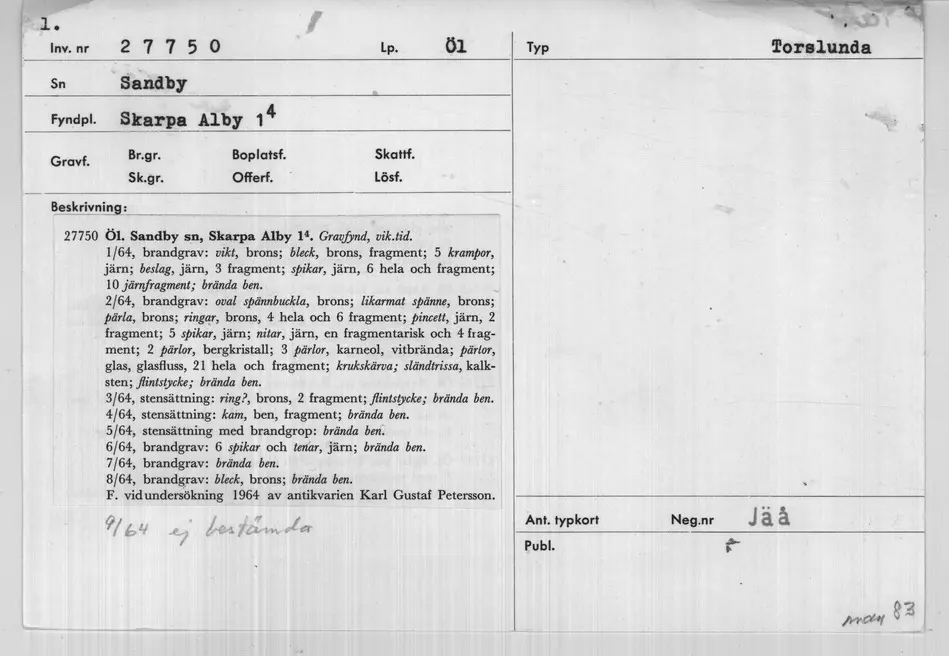 1.
Inv. nr 2 7 7 5 0 Lp. Öl
Sn Sandby
Fyndpl. Skarpa Alby 1⁴
Gravf. Br.gr. Boplatsf. Skattf.
Sk.gr. Offerf. Lösf.
Beskrivning:
27750 Öl. Sandby sn, Skarpa Alby 1⁴. Gravfynd, vik.tid.
1/64, brandgrav: vikt, brons; bleck, brons, fragment; 5 krampor,
järn; beslag, järn, 3 fragment; spikar, järn, 6 hela och fragment;
10 järnfragment; brända ben.
2/64, brandgrav: oval spännbuckla, brons; likarmat spänne, brons;
pärla, brons; ringar, brons, 4 hela och 6 fragment; pincett, järn, 2
fragment; 5 spikar, järn; nitar, järn, en fragmentarisk och 4 frag-
ment; 2 pärlor, bergkristall; 3 pärlor, karneol, vitbrända; pärlor,
glas, glasfluss, 21 hela och fragment; krukskärva; sländtrissa, kalk-
sten; flintstycke; brända ben.
3/64, stensättning: ring?, brons, 2 fragment; flintstycke; brända ben.
4/64, stensättning: kam, ben, fragment; brända ben.
5/64, stensättning med brandgrop: brända ben.
6/64, brandgrav: 6 spikar och tenar, järn; brända ben.
7/64, brandgrav: brända ben.
8/64, brandgrav: bleck, brons; brända ben.
F. vid undersökning 1964 av antikvarien Karl Gustaf Petersson.
9/64 ej bestämda
Typ Torslunda
Ant. typkort Neg.nr Jäå
Publ. F
83